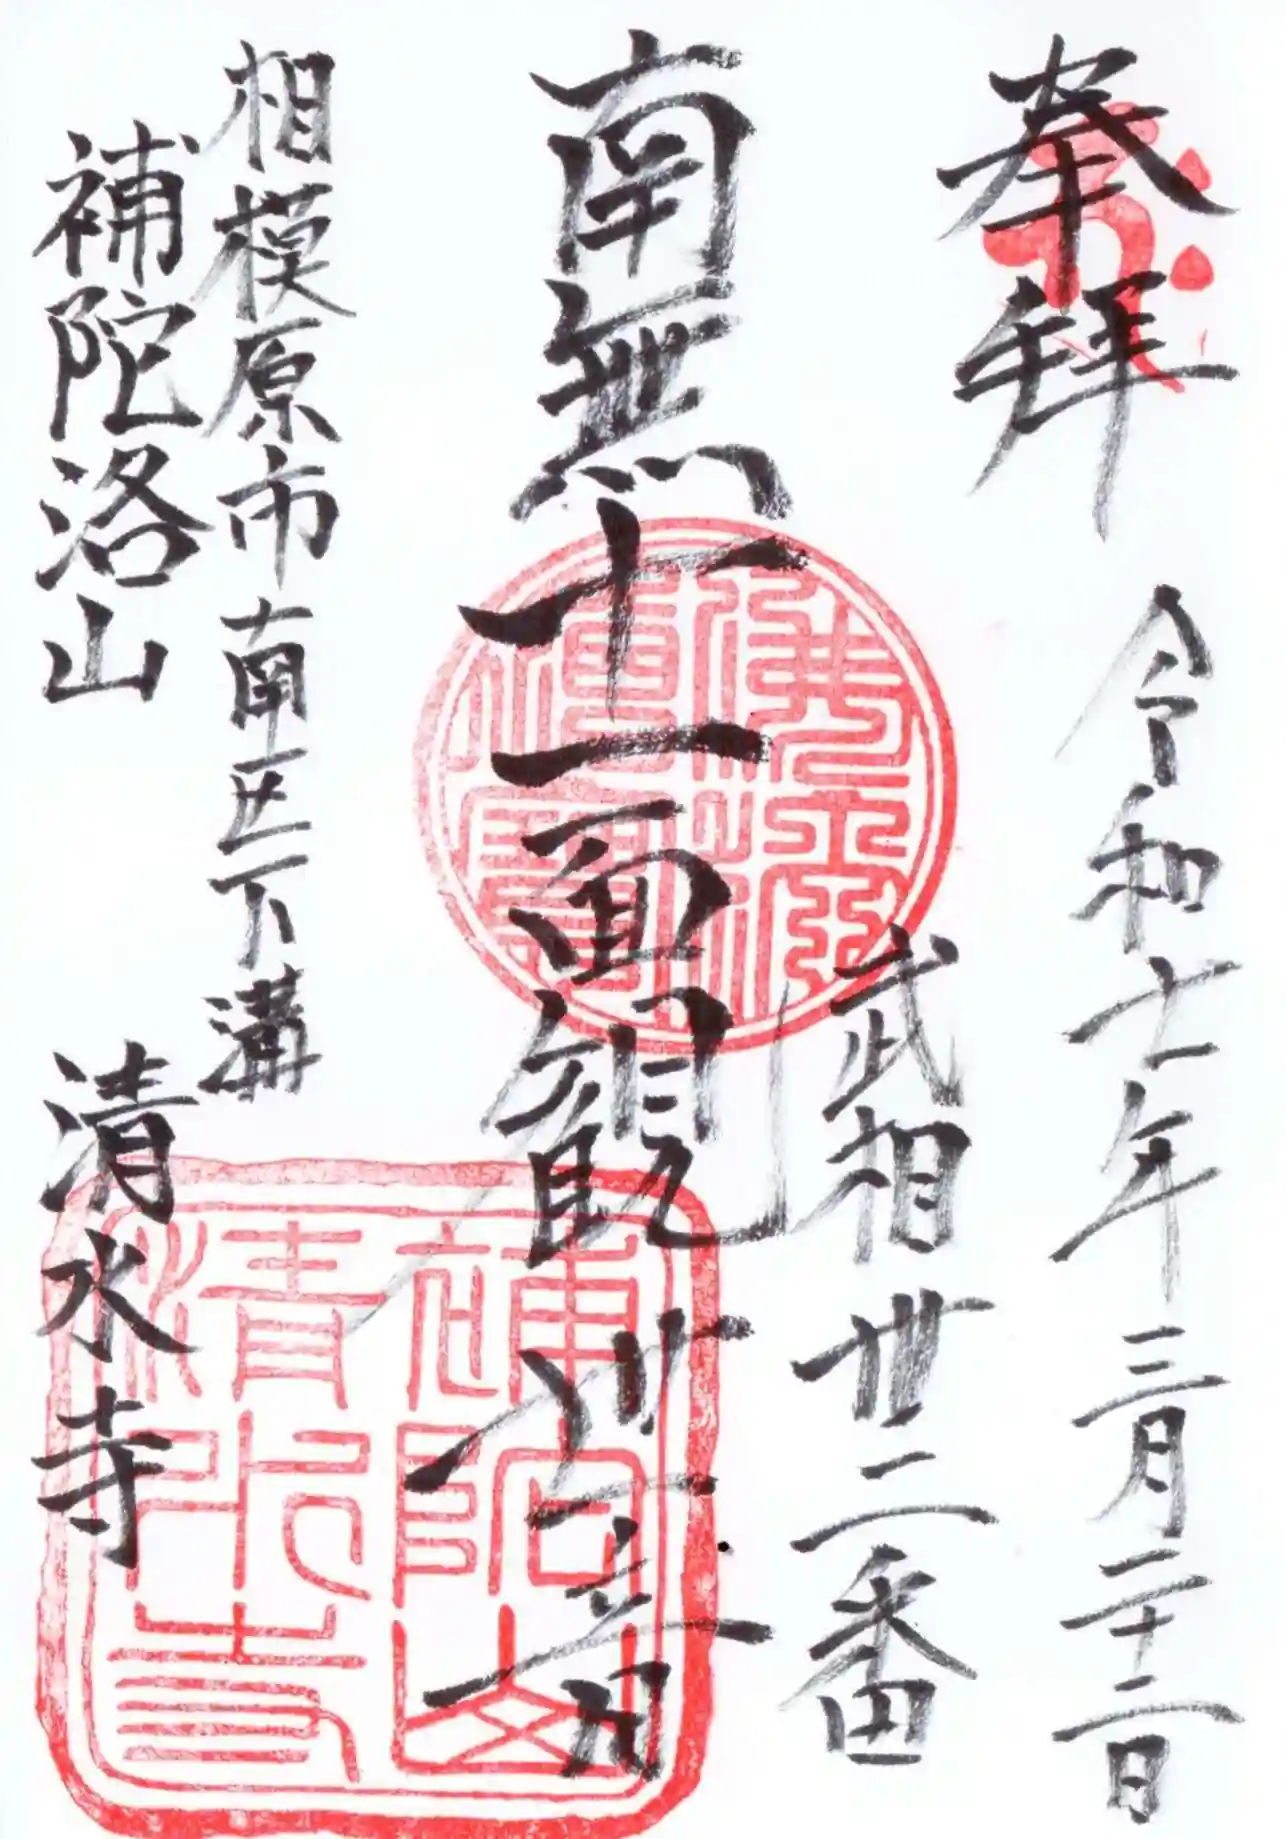 奉拝
令和七年三月二十二日
武相卅二番
南無十一面観世音
相模原市南区下溝
補陀洛山
清水寺
佛法僧寶
補陀山
清水寺